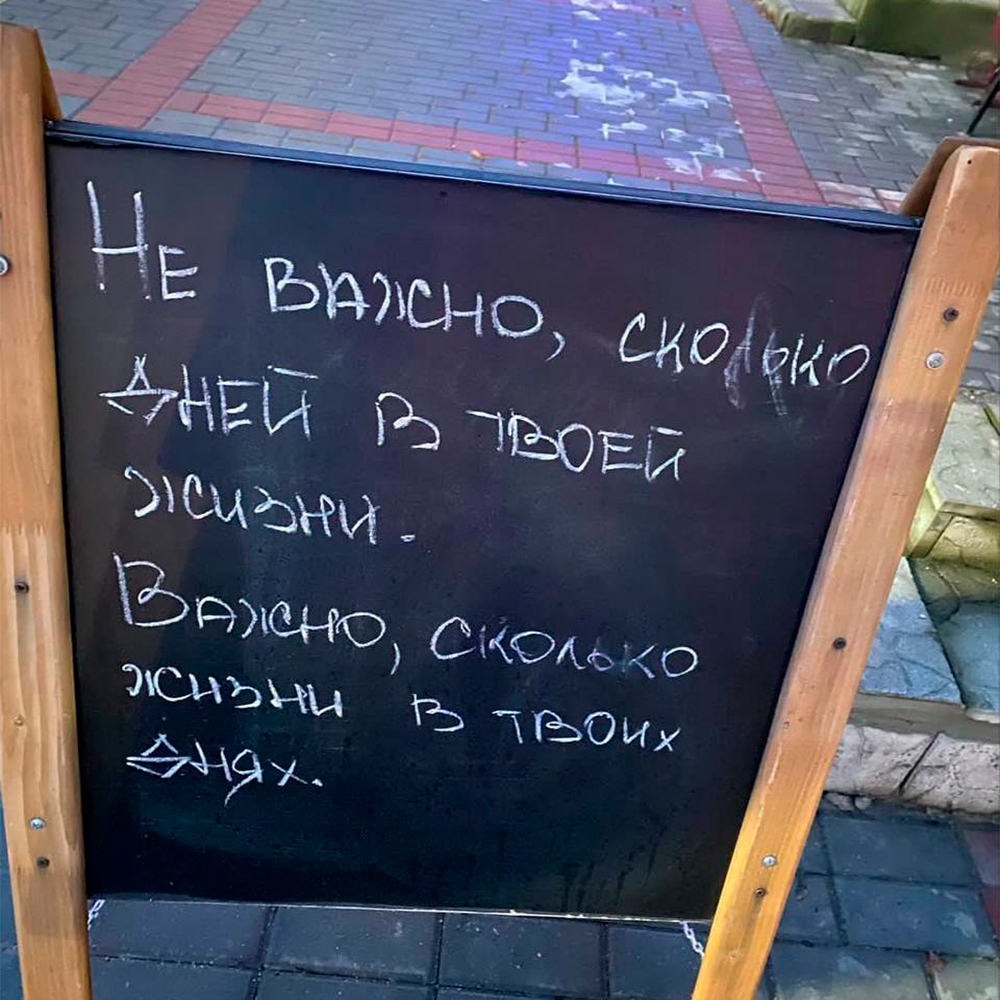 Не важно, сколько
дней в твоей
жизни.
Важно, сколько
жизни в твоих
днях.